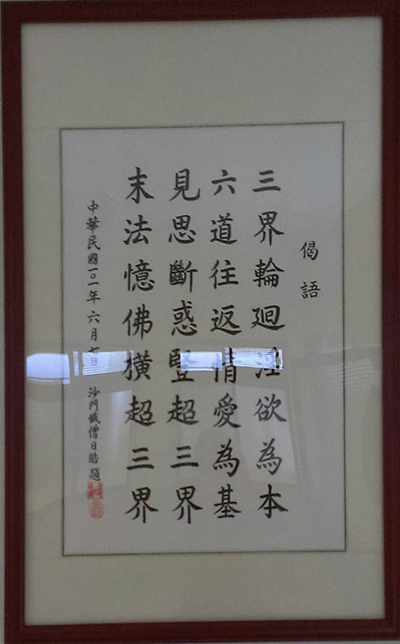 偈語
三界輪迴淫欲為本
六道往返情愛為基
見思斷惑竪超三界
末法憶佛橫超三界
中華民國一〇一年六月七日 沙門懺僧日題